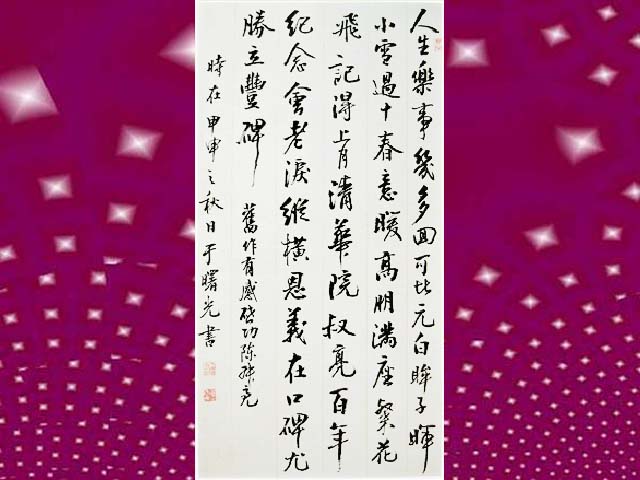 人生樂事幾多回可比元白眸子暉
小雪過十春意暖高朋滿座粲花
飛記得上月清華院叔亮百年
紀念會老淚縱橫恩義在口碑尤
勝立豐碑 舊作有感啓功陳
時在甲申之秋日于曙光書